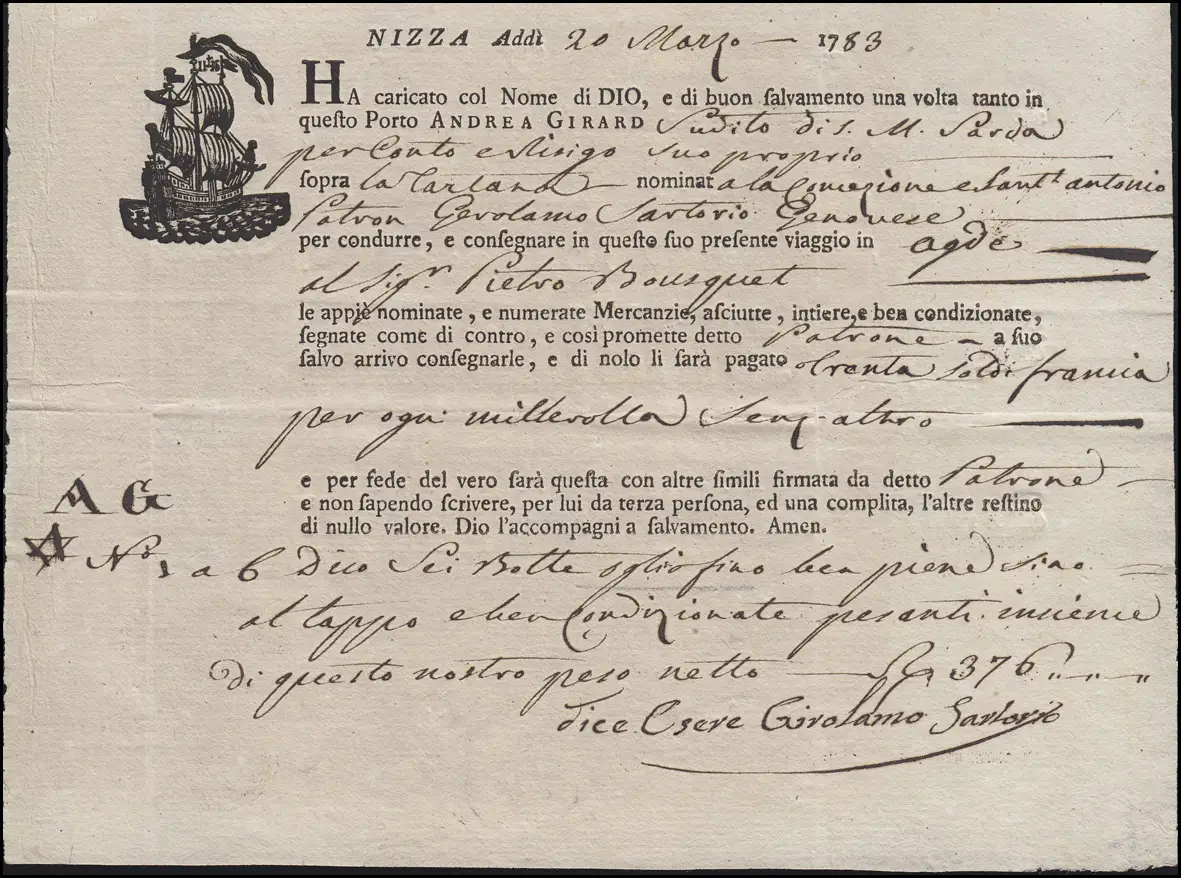 NIZZA Addì 20 Marzo 1783
HA caricato col Nome di DIO, e di buon ſalvamento una volta tanto in
queſto Porto ANDREA GIRARD Sudito di S. M. Sarda
per Conto e Risigo Suo proprio
ſopra la Tartana nominata la Concezione e Sant. antonio
Patron Gerolamo Sartorio Genovese
per condurre, e conſegnare in queſto ſuo preſente viaggio in agde
al Sigr. Pietro Bousquet
le appiè nominate, e numerate Mercanzie, aſciutte, intiere, e ben condizionate,
ſegnate come di contro, e così promette detto Patrone a ſuo
ſalvo arrivo conſegnarle, e di nolo li ſarà pagato Trenta Soldi francia
per ogni millerolla Senz altro
e per fede del vero ſarà queſta con altre ſimili firmata da detto Patrone
e non ſapendo ſcrivere, per lui da terza perſona, ed una complita, l'altre reſtino
di nullo valore. Dio l'accompagni a ſalvamento. Amen.
A G
No. 1 a 6 Dico Sei Botte oglio fino ben piene sino
al tappo e ben Condizionate pesanti insieme
Di questo nostro peso netto 376
dice Esere Girolamo Sartorio